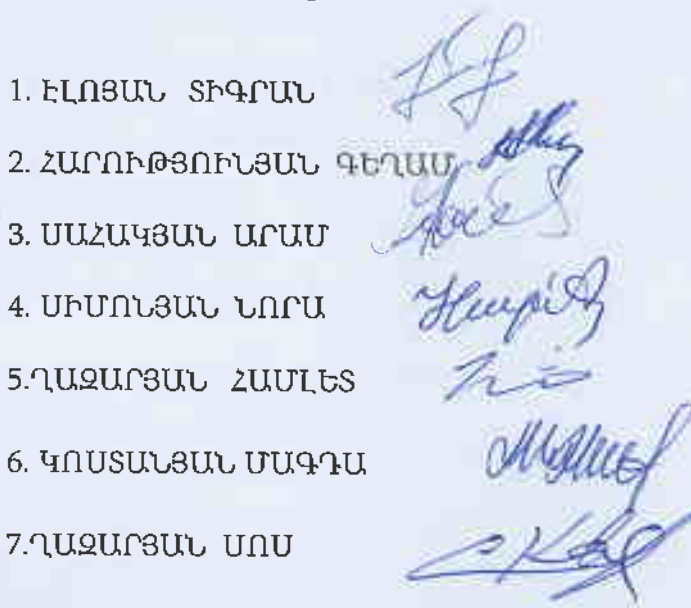 1. ԷԼՈՅԱՆ ՏԻԳՐԱՆ
2. ՀԱՐՈՒԹՅՈՒՆՅԱՆ ԳԵՂԱՄ
3. ՍԱՀԱԿՅԱՆ ԱՐԱՄ
4. ՍԻՄՈՆՅԱՆ ՆՈՐԱ
5.ՂԱԶԱՐՅԱՆ ՀԱՄԼԵՏ
6. ԿՈՍՏԱՆՅԱՆ ՄԱԳԴԱ
7.ՂԱԶԱՐՅԱՆ ՍՈՍ